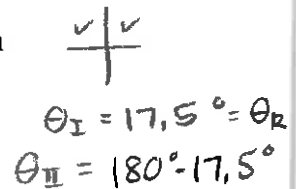 ✓ ✓
θ_I = 17,5° = θ_R
θ_II = 180° - 17,5°